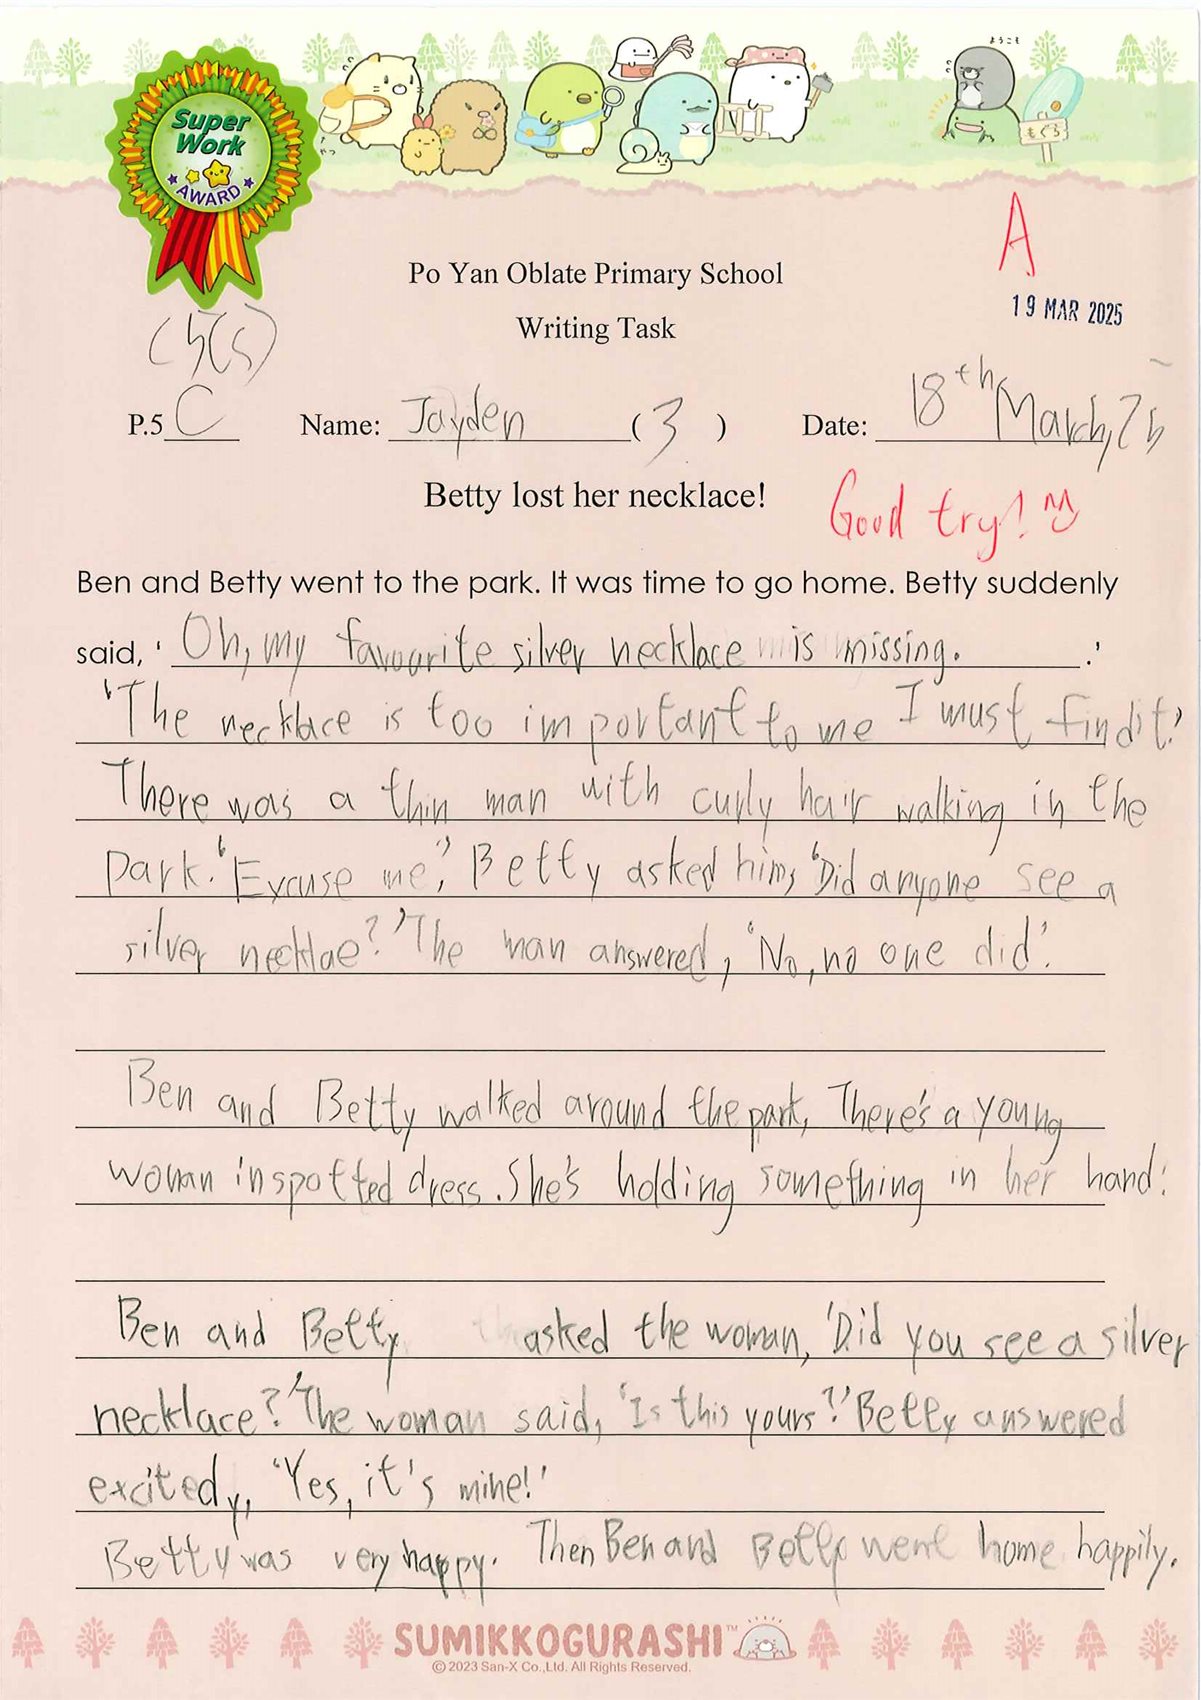 ようこそ
Super
Work
AWARD
もぐら
やっ
A
Po Yan Oblate Primary School
19 MAR 2025
Writing Task
(5(s)
P.5 C Name: Jayden ( 3 ) Date: 18th March, 25
Betty lost her necklace!
Good try!
Ben and Betty went to the park. It was time to go home. Betty suddenly
said, ' Oh, my favourite silver necklace is missing. .'
'The necklace is too important to me I must find it.'
There was a thin man with curly hair walking in the
park. 'Excuse me,' Betty asked him, 'Did anyone see a
silver necklae?' The man answered, 'No, no one did'.
Ben and Betty walked around the park, There's a young
woman in spotted dress. She's holding something in her hand.
Ben and Betty asked the woman, 'Did you see a silver
necklace?' The woman said, 'Is this yours?' Betty answered
excitedy, 'Yes, it's mine!'
Betty was very happy. Then Ben and Betty went home happily.
SUMIKKOGURASHI™
©2023 San-X Co.,Ltd. All Rights Reserved.